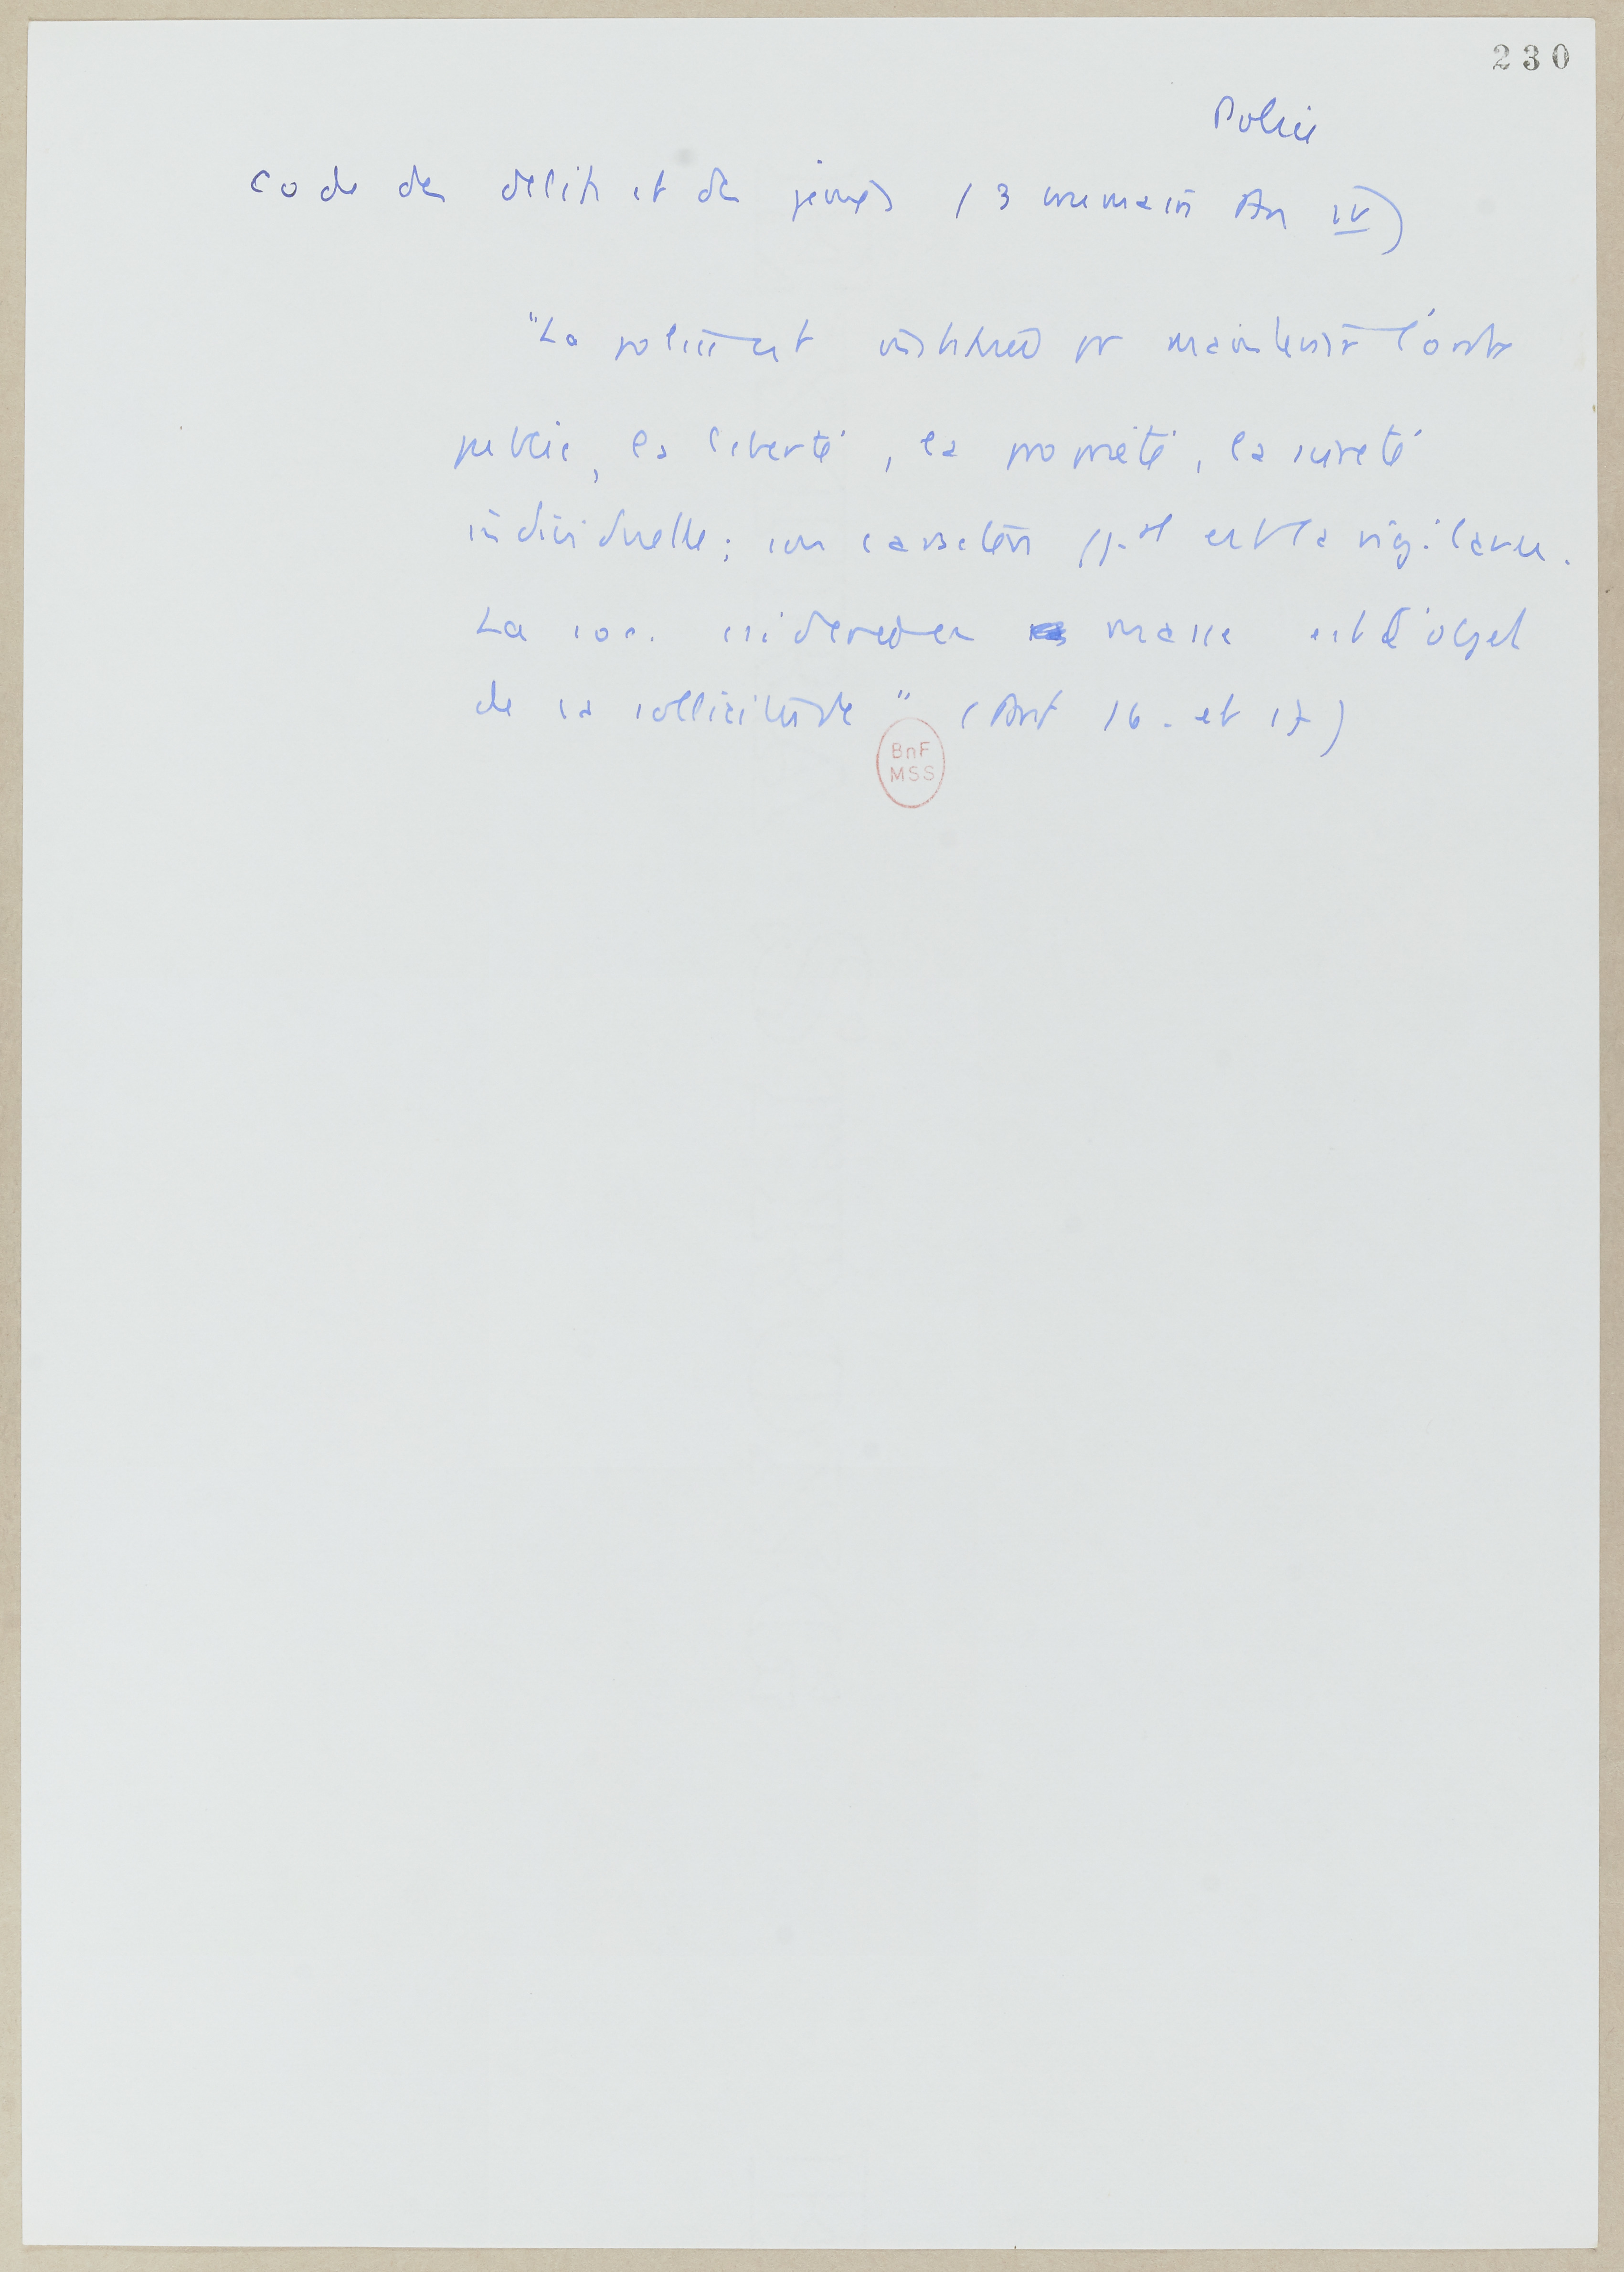 230
Police
Code des délits et des peines (3 brumaire An IV)
"La police est instituée pr maintenir l'ordre
public, la liberté, la propriété, la sûreté
individuelle ; son caractère ppal est la vigilance.
La soc. considérée en masse est l'objet
de sa sollicitude" (Art 16. et 17)
BnF
MSS